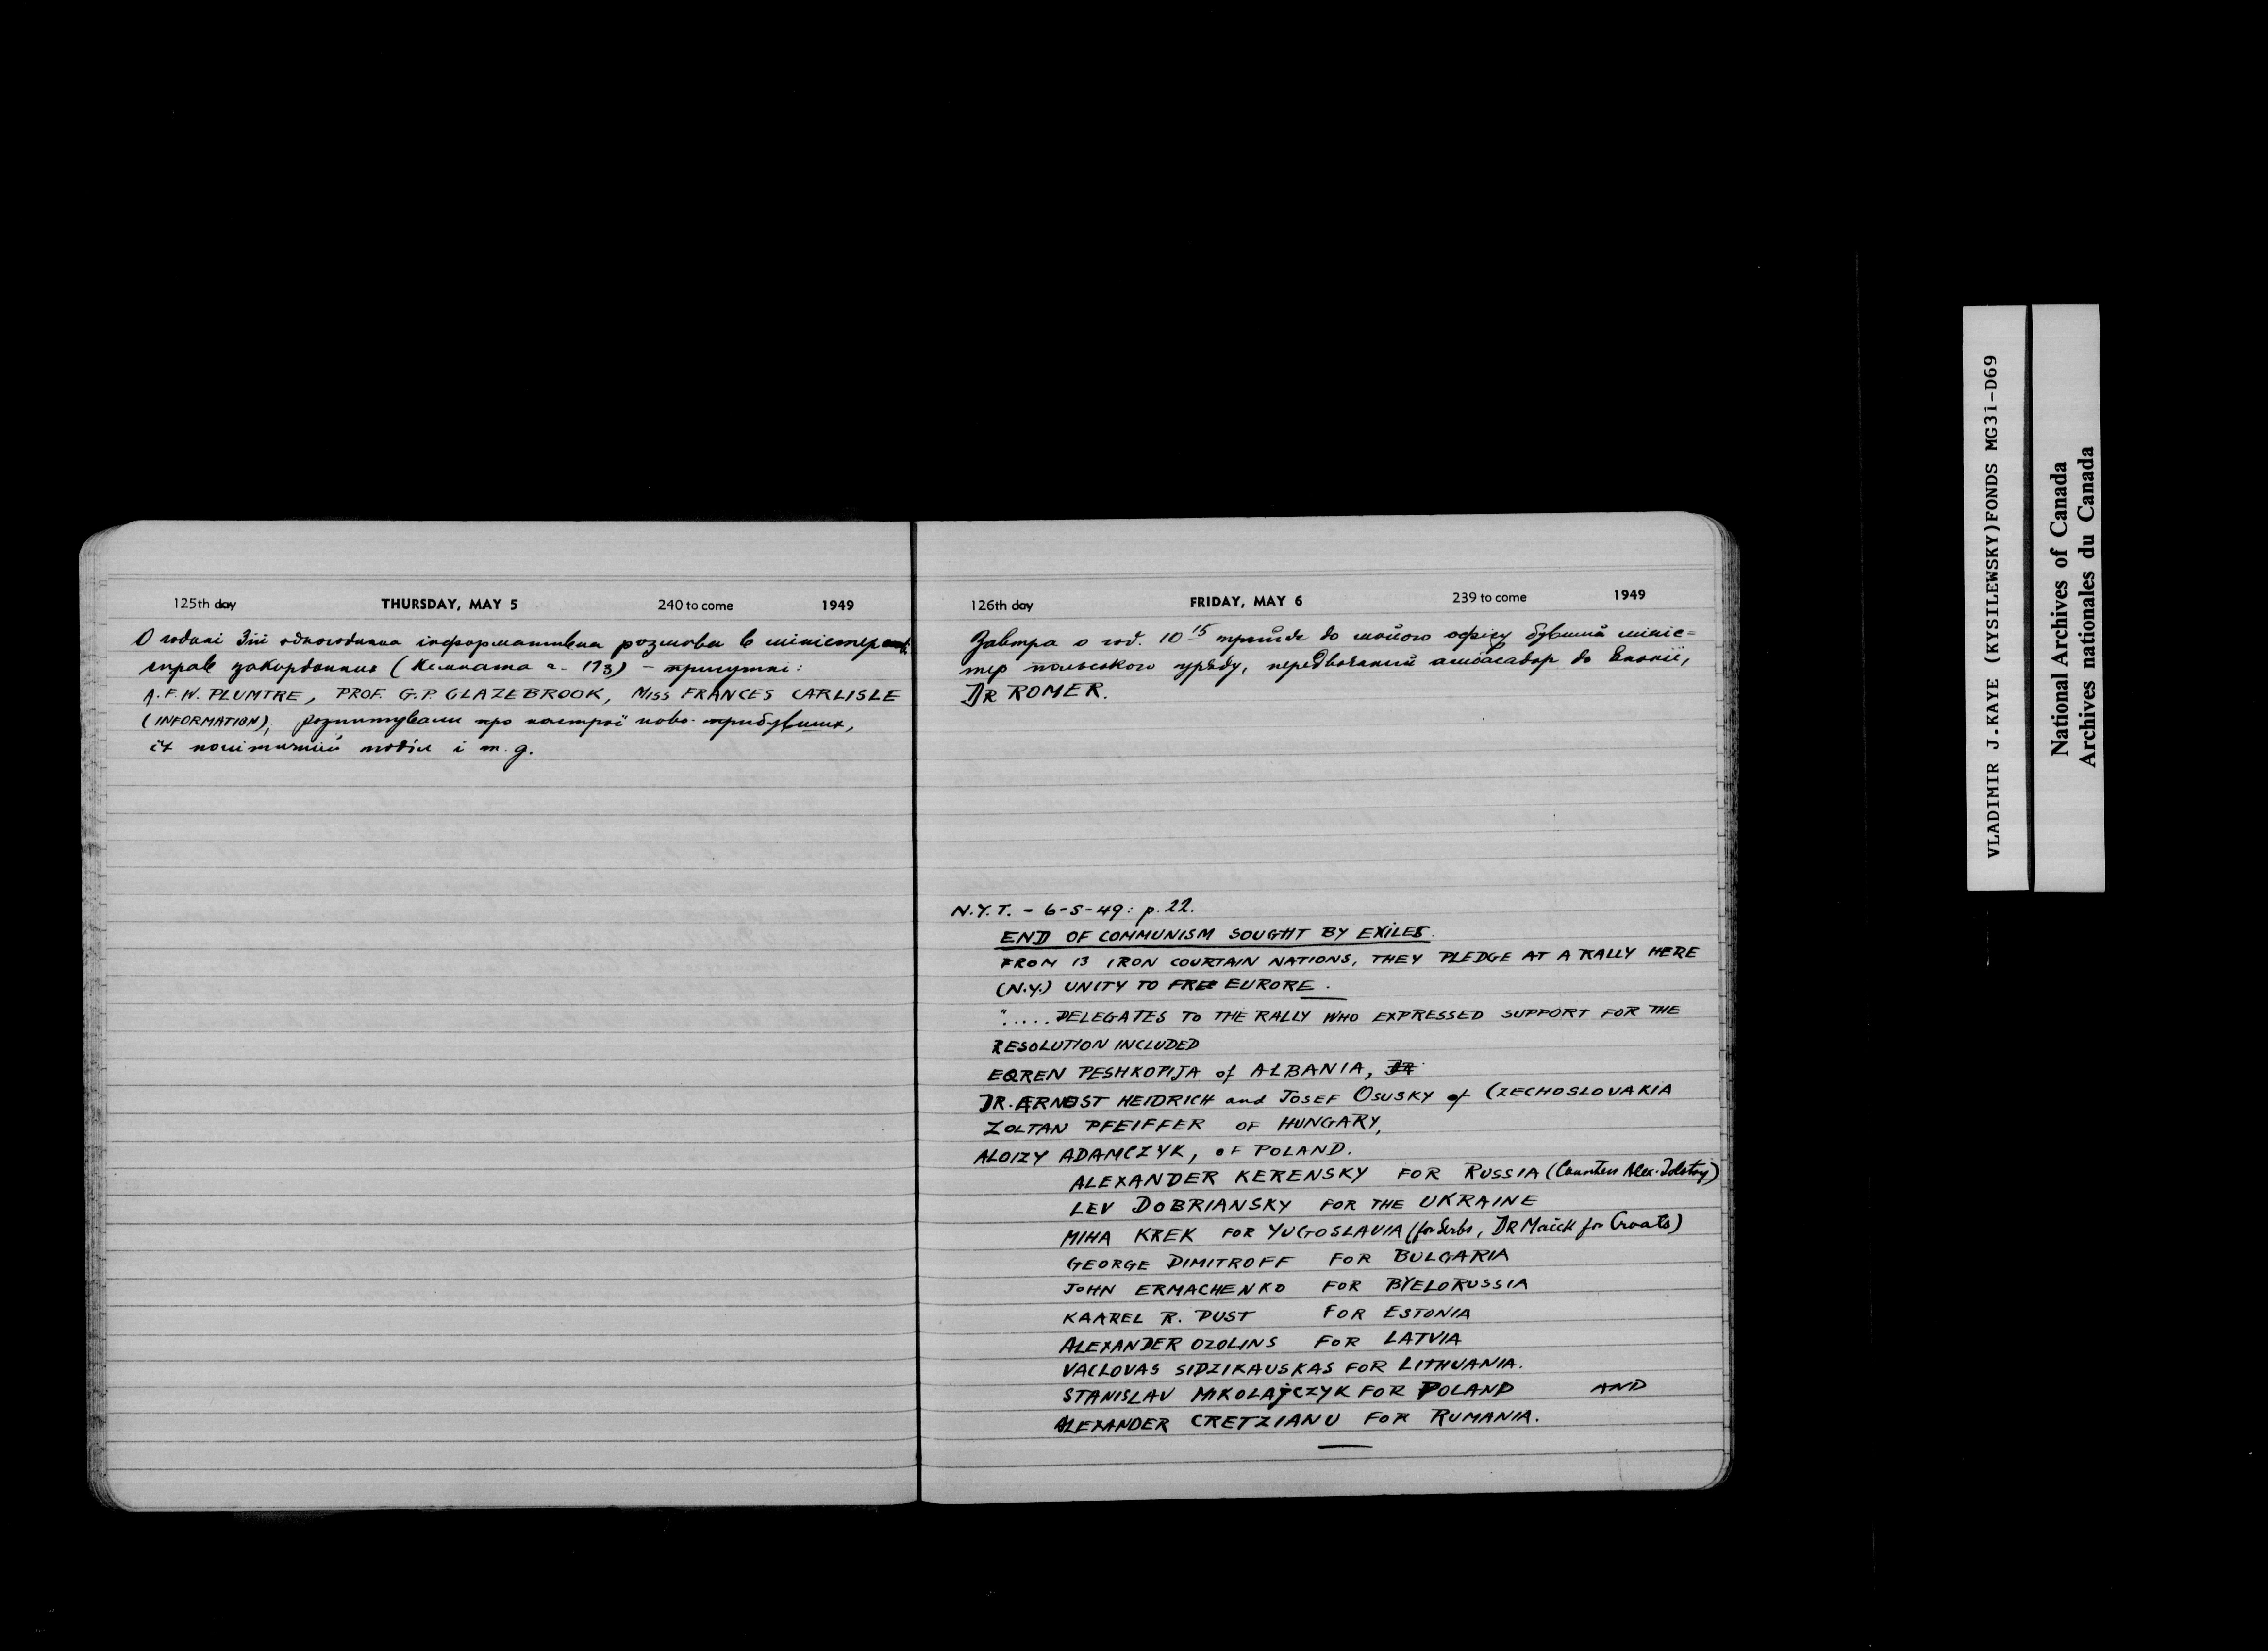 125th day THURSDAY, MAY 5 240 to come 1949
О годині 3ій одногодинна інформативна розмова в міністерстві
справ закордонних (кімната ч. 173) – присутні:
A.F.W. PLUMTRE, PROF. G.P. GLAZEBROOK, MISS FRANCES CARLISLE
(INFORMATION); розпитували про настрої ново-прибувших,
їх політичний поділ і т. д.
126th day FRIDAY, MAY 6 239 to come 1949
Завтра о год. 10 15 прийде до мойого офісу бувший мініс=
тер польського уряду, передвоєнний амбасадор до Японії,
DR ROMER.
N.Y.T. - 6-5-49: p. 22.
END OF COMMUNISM SOUGHT BY EXILES.
FROM 13 IRON COURTAIN NATIONS, THEY PLEDGE AT A RALLY HERE
(N.Y.) UNITY TO FREE EUROPE.
"..... DELEGATES TO THE RALLY WHO EXPRESSED SUPPORT FOR THE
RESOLUTION INCLUDED
EQREN PESHKOPIJA of ALBANIA, DR
DR. ERNEST HEIDRICH and JOSEF OSUSKY of CZECHOSLOVAKIA
ZOLTAN PFEIFFER OF HUNGARY,
ALOIZY ADAMCZYK, OF POLAND.
ALEXANDER KERENSKY FOR RUSSIA (Countess Alex. Tolstoy)
LEV DOBRIANSKY FOR THE UKRAINE
MIHA KREK FOR YUGOSLAVIA (for Serbs, DR Maček for Croats)
GEORGE DIMITROFF FOR BULGARIA
JOHN ERMACHENKO FOR BYELORUSSIA
KAAREL R. PUST FOR ESTONIA
ALEXANDER OZOLINS FOR LATVIA
VACLOVAS SIDZIKAUSKAS FOR LITHUANIA.
STANISLAV MIKOLAJCZYK FOR POLAND AND
ALEXANDER CRETZIANU FOR RUMANIA.
VLADIMIR J.KAYE (KYSILEWSKY)FONDS MG31-D69
National Archives of Canada
Archives nationales du Canada